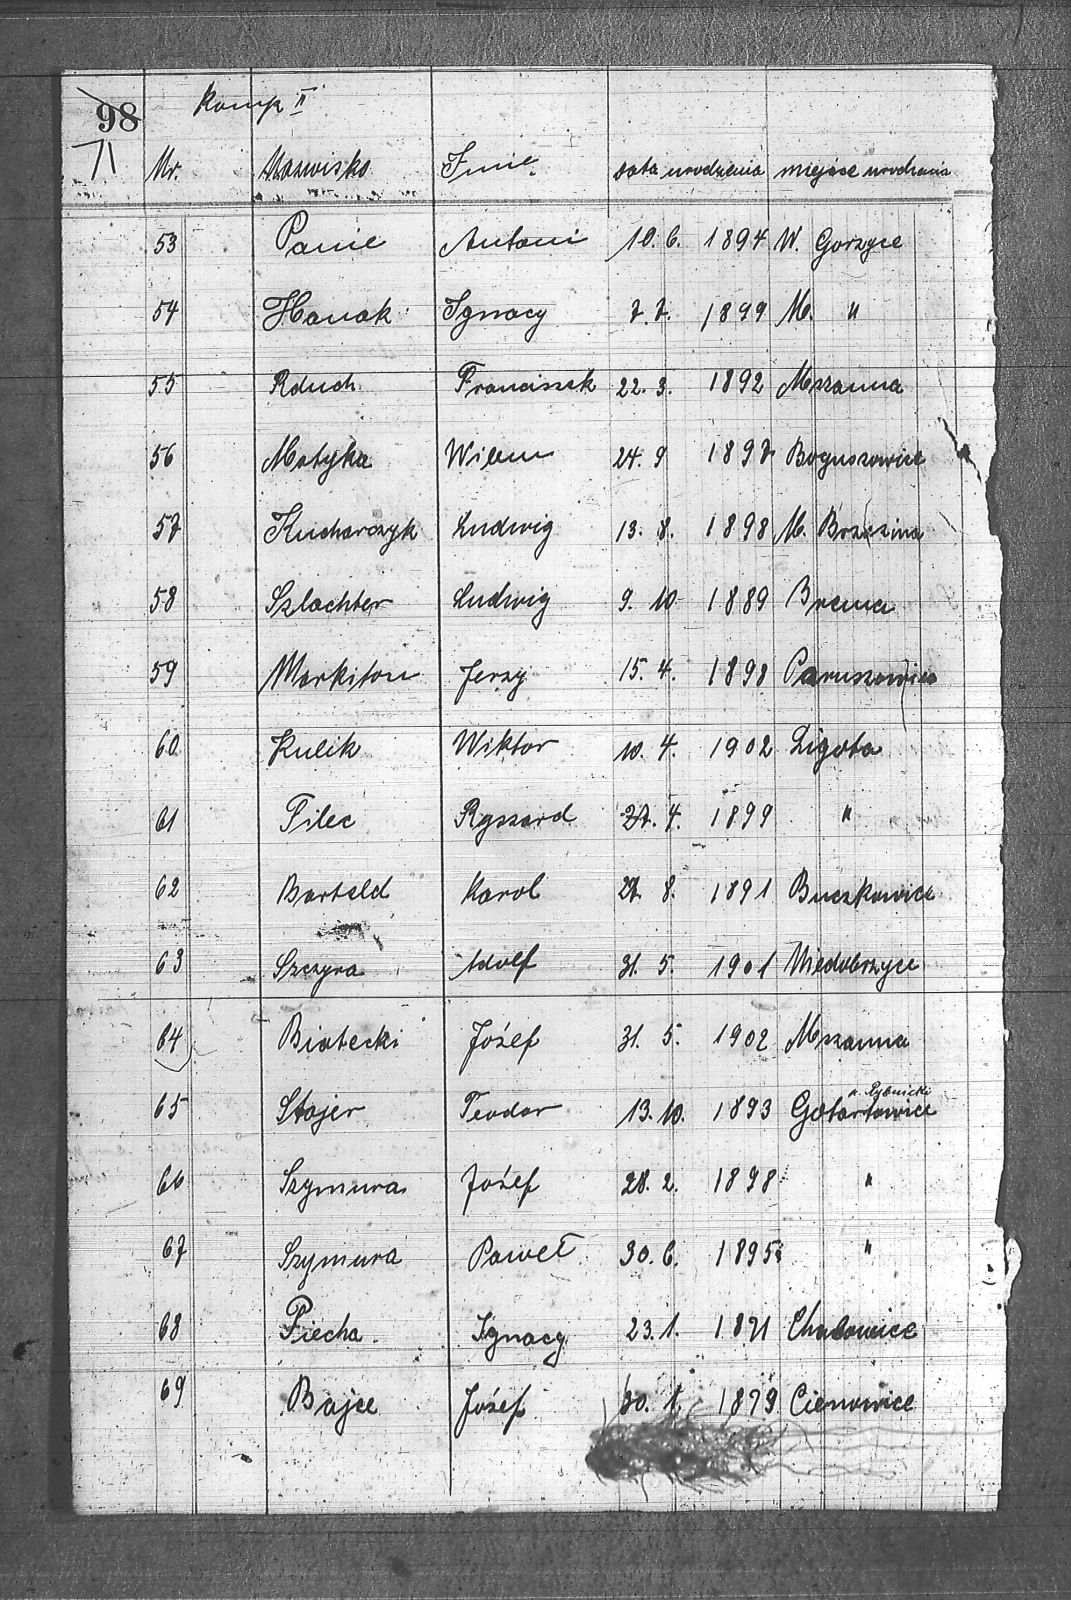 98
Komp II
71
Nr. Nazwisko Imie. Data urodzenia miejsce urodzenia
53 Panic Antoni 10. 6. 1894 W. Gorzyce
54 Hanak Ignacy 7. 7. 1899 M. "
55 Rduch Franciszek 22. 3. 1892 Mszanna
56 Motyka Wilem 24. 9 1897 Boguszowice
57 Kucharczyk Ludwig 13. 8. 1898 M. Brzezina
58 Szlachter Ludwig 9. 10 1889 Brema
59 Markiton Jerzy 15. 4. 1898 Paruszowice
60 Kulik Wiktor 10. 4. 1902 Ligota
61 Pilec Ryszard 27. 4. 1899 "
62 Barteld Karol 27 8. 1891 Buczkowice
63 Szczyra Adolf 31. 5. 1901 Niedobrzyce
64 Biatecki Józef 31. 5. 1902 Mszanna
p. Rybnicki
65 Stajer Teodor 13. 10. 1893 Gotartowice
66 Szymura Józef 28. 2. 1898 "
67 Szymura Paweł 30. 6. 1895 "
68 Piecha. Ignacy 23. 1. 1871
69 Bajce Józef 30. 1. 1879 Cienowice